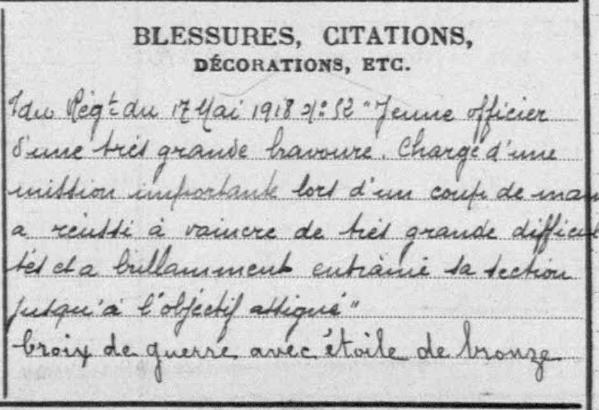 BLESSURES, CITATIONS,
DÉCORATIONS, ETC.
du Régt du 17 Mai 1918 N° 52 "Jeune officier
d'une très grande bravoure. Chargé d'une
mission importante lors d'un coup de main
a réussi à vaincre de très grande difficul
tés et a brillamment entraîné sa section
jusqu'à l'objectif assigné"
Croix de guerre avec étoile de bronze